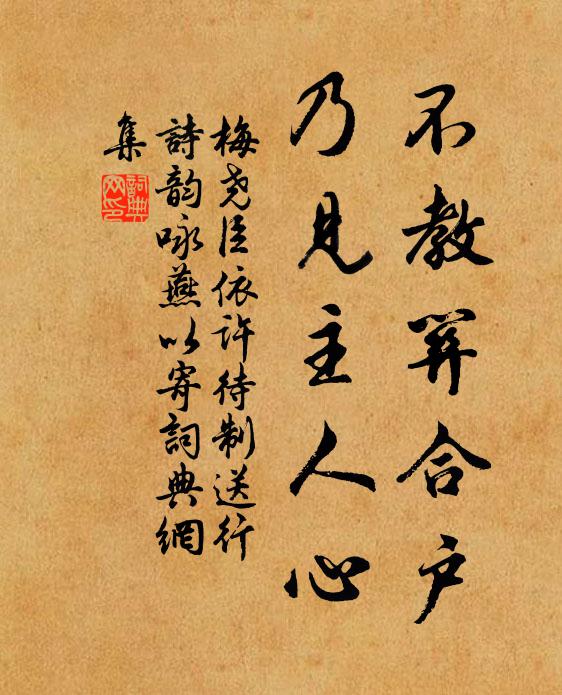 不教合户
乃見主人心
梅尧臣依许待制送行
詩韵咏燕以寄詞典網
集
詞典
网印